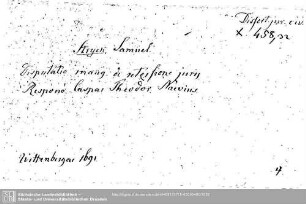 Dissert. jur. civ.
X. 458,32
Stryck, Samuel.
Disputatio inaug. de successione juris
Respond. Caspar Theodor. Naevius
Wittenbergae 1691
4
Sächsische Landesbibliothek -
Staats- und Universitätsbibliothek Dresden